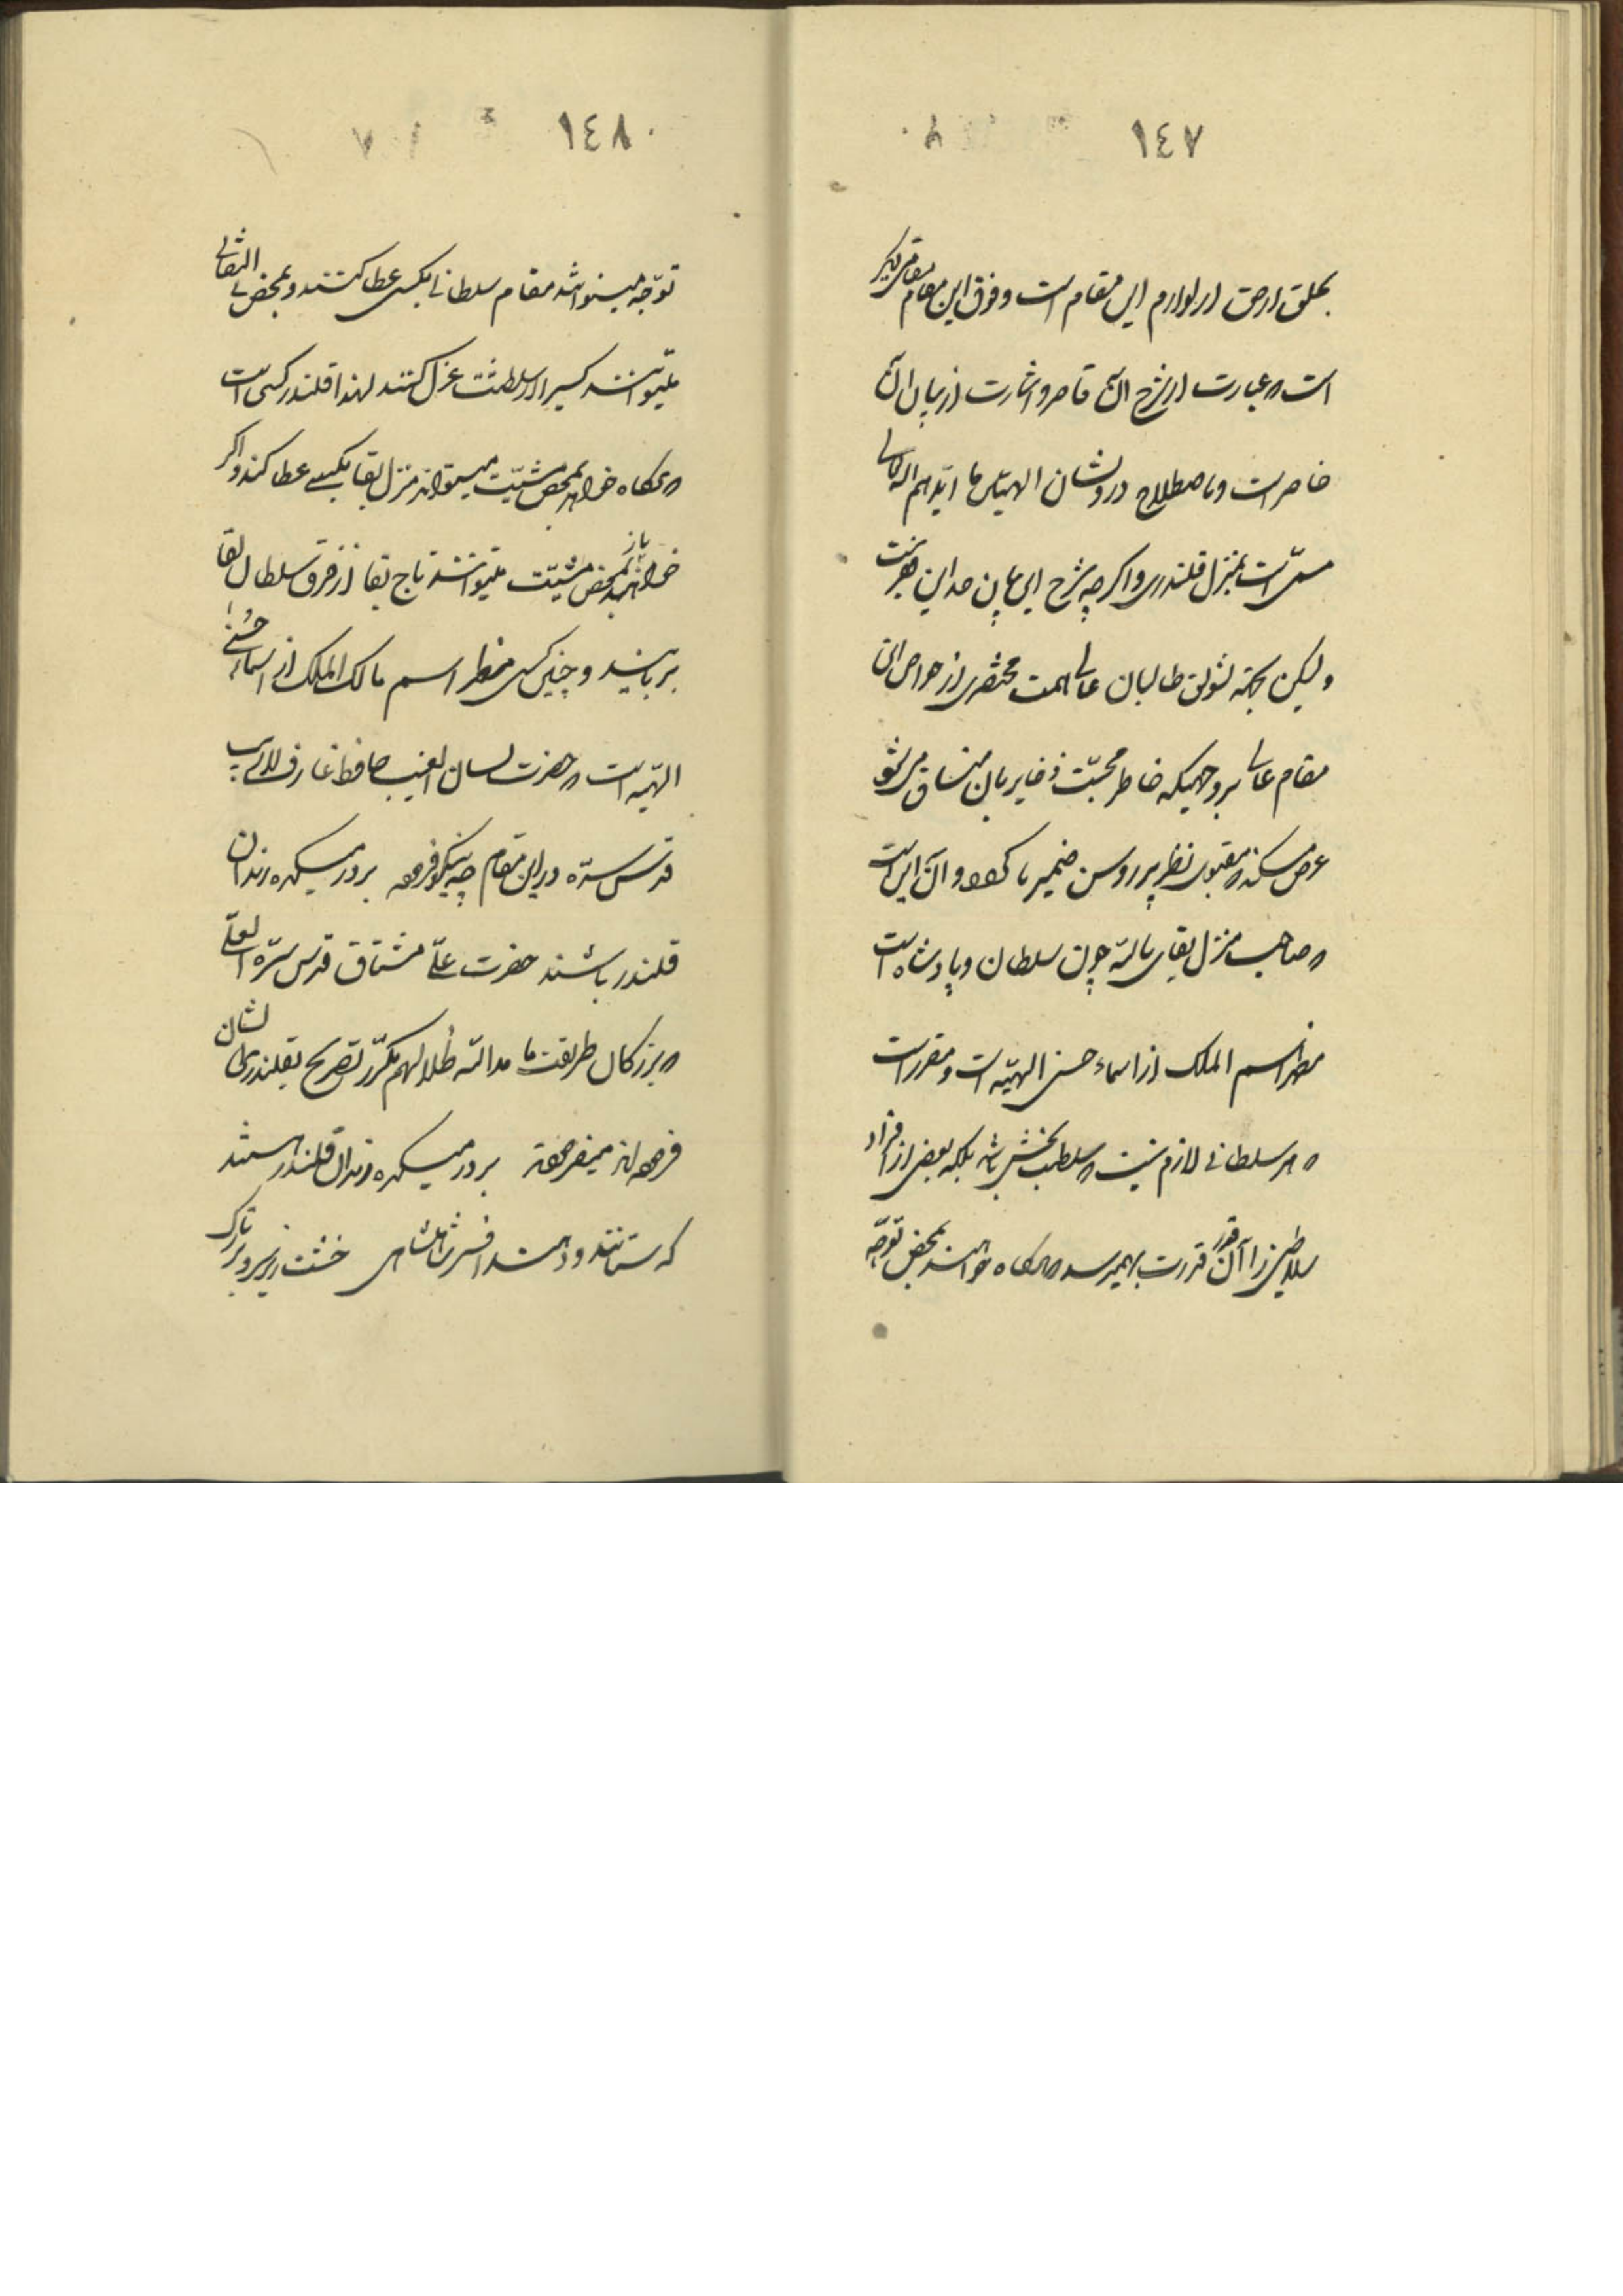 ١٤٧
بخلق از حق از لوازم این مقام است و فوق این مقام مقامی دیگر
است که عبارت از شرح آن قاصر و اشارت از بیان آن
خاصر است و باصطلاح درویشان الهیتشان ما ایّدهم الله تعالی
مسمّی است بمنزل قلندری و اگر چه شرح این بیان
ولیکن بجهة تشویق طالبان عالی همت مختصری از خواص این
مقام عالی بر وجهیکه خاطر محبّت ذخایر بآن منساق میشود
عرض میکند که مقبول نظر پیر روشن ضمیر ما گردد و آن این است
که صاحب منزل بقای بالله چون سلطان و پادشاه است
مظهر اسم الملک از اسماء حسنی الهیّه است و مقرر است
که هر سلطانی لازم نیست که سلطنت بخش باشد بلکه بعضی از افراد
سلاطین را آن قدر قدرت بهمیرسد که هرگاه خواهند بمحض توجّه
١٤٨
توجّه میتوانند مقام سلطانی بکسی عطا کنند و بمحض بی التفاتی
میتوانند کسیرا از سلطنت عزل کنند لهذا قلندر کسی است
که هرگاه خواهد بمحض مشیّت میتواند منزل بقا بکسی عطا کند و اگر
خواهد باز بمحض مشیّت میتوانند تاج بقا از فرق سلطان بقا
بربایند و چنین کسی مظهر اسم مالک الملک از اسماء حُسنی
الهیّه است که حضرت لسان الغیب حافظ عارف
قدّس سرّه در این مقام چه نیکو فرموده بر در میکده رندان
قلندر باشند حضرت علیّ مشتاق قدّس سرّه العلیّ
که بزرگان طریقت ما مدالله ظلالهم مکرّر تصریح بقلندری ایشان
فرموده‌اند میفرموده بر در میکده رندان قلندر هستند
که ستانند و دهند افسر شاهنشاهی خشت زیر سر و بر تارک